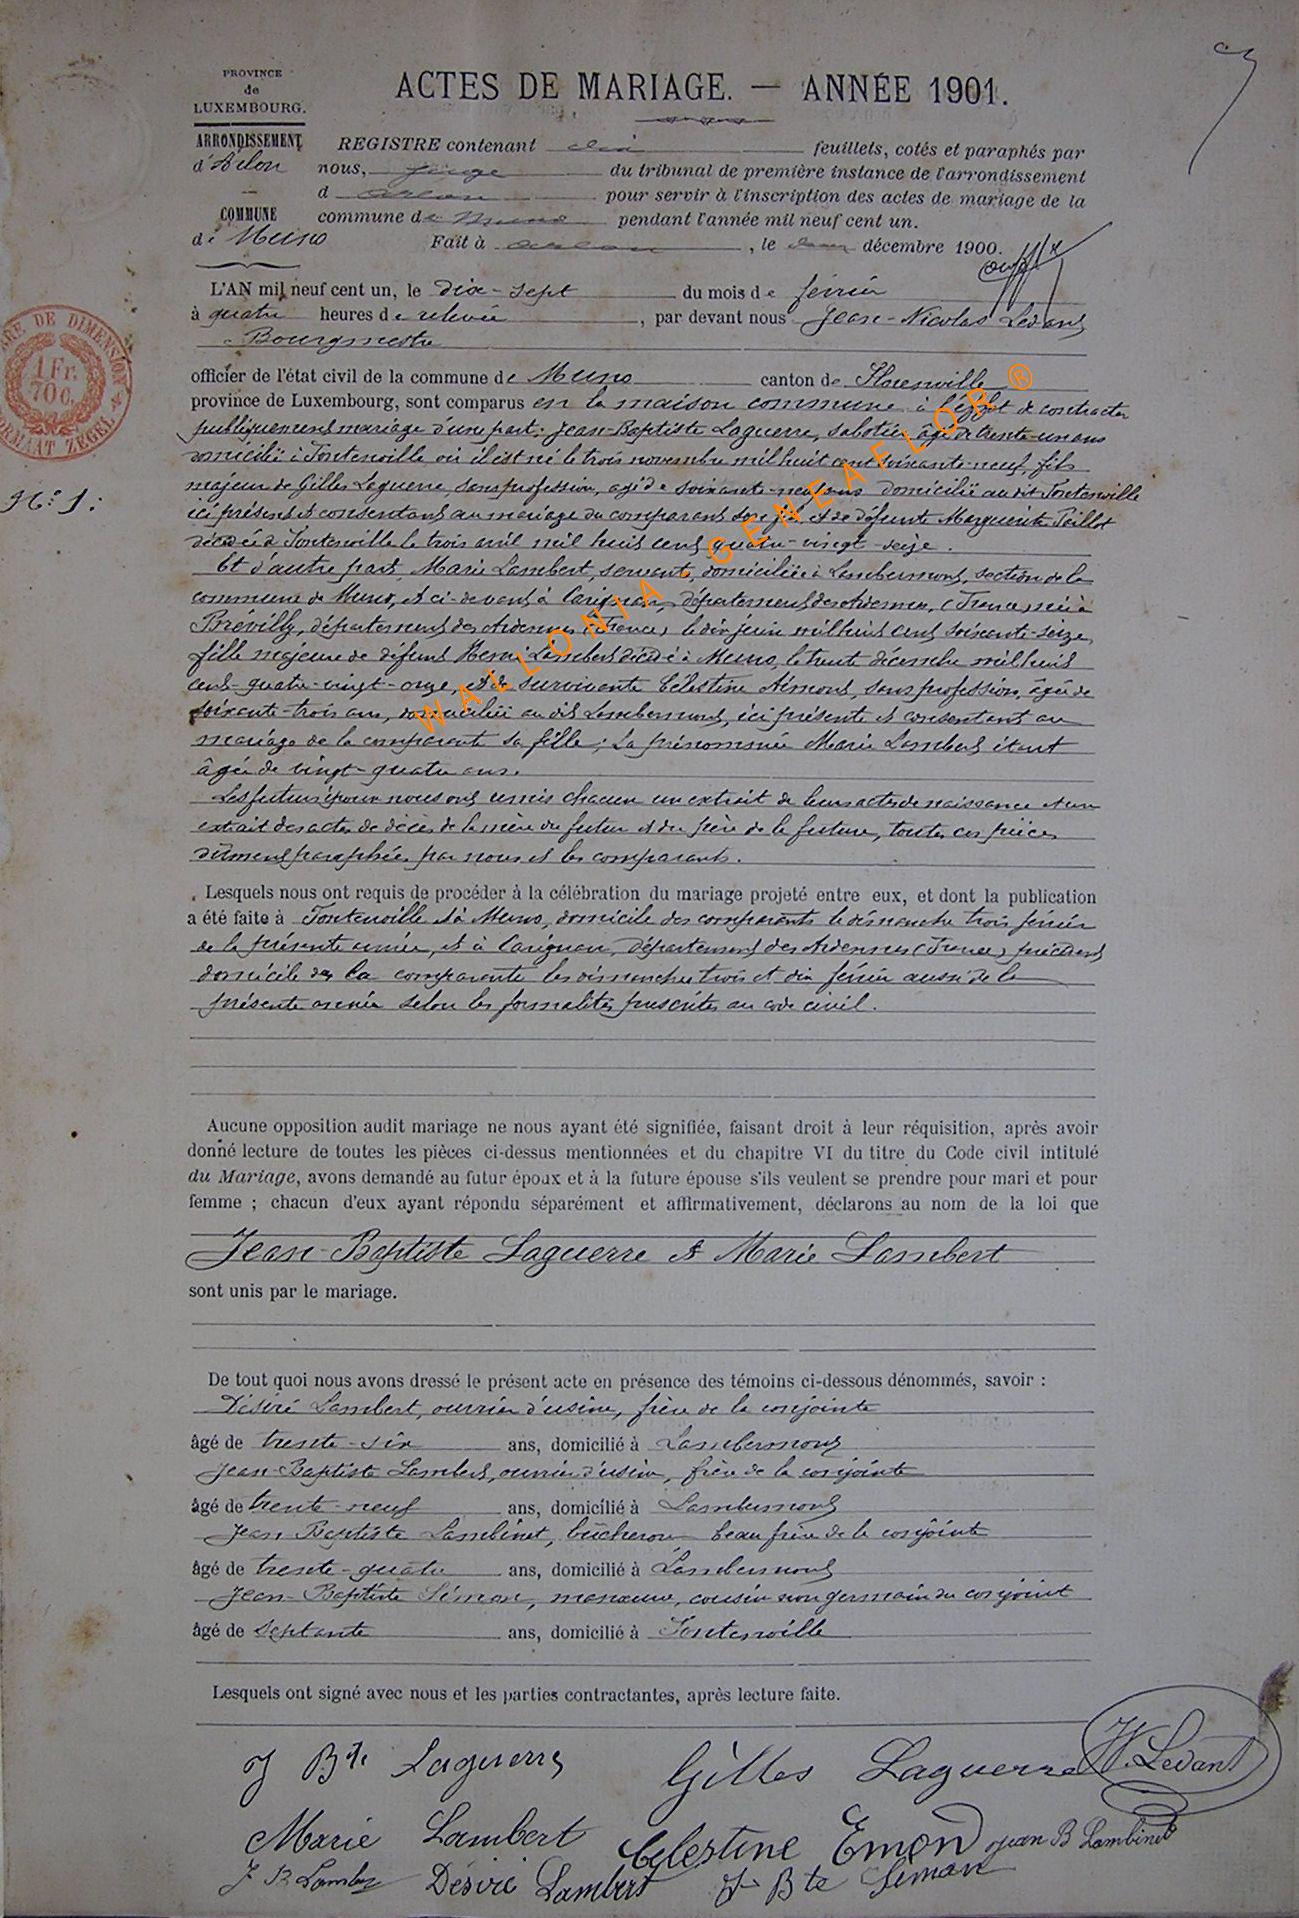 PROVINCE
de
LUXEMBOURG.
ARRONDISSEMENT
d'Arlon
COMMUNE
de Muno
ACTES DE MARIAGE. — ANNÉE 1901.
REGISTRE contenant feuillets, cotés et paraphés par
nous, juge du tribunal de première instance de l'arrondissement
d Arlon pour servir à l'inscription des actes de mariage de la
commune de Muno pendant l'année mil neuf cent un.
Fait à Arlon, le décembre 1900.
TIMBRE DE DIMENSION
1 Fr.
70 c.
ZEGEL
No. 1.
L'AN mil neuf cent un, le dix-sept du mois de février
à quatre heures de relevée, par devant nous Jean-Nicolas Ledant
Bourgmestre
officier de l'état civil de la commune de Muno canton de Florenville
province de Luxembourg, sont comparus en la maison commune à l'effet de contracter
publiquement mariage d'une part: Jean-Baptiste Laguerre, sabotier âgé de trente-un ans
domicilié à Fontenoille où il est né le trois novembre mil huit cent soixante-neuf, fils
majeur de Gilles Laguerre, sans profession, âgé de soixante-neuf ans domicilié au dit Fontenoille
ici présent et consentant au mariage du comparant son fils et de défunte Marguerite
décédée à Fontenoille le trois avril mil huit cent quatre-vingt-seize.
Et d'autre part, Marie Lambert, servante, domiciliée à Lambermont, section de la
commune de Muno, et ci-devant à Carignan, département des Ardennes, (France) née à
Brévilly, département des Ardennes (France) le dix juin mil huit cent soixante-seize,
fille majeure de défunt Henri Lambert décédé à Muno, le trente décembre mil huit
cent-quatre-vingt-onze, et de survivante Célestine Aimont, sans profession, âgée de
soixante-trois ans, domiciliée au dit Lambermont, ici présente et consentant au
mariage de la comparante sa fille; La prénommée Marie Lambert étant
âgée de vingt-quatre ans.
Les futurs époux nous ont remis chacun un extrait de leurs actes de naissance et un
extrait des actes de décès de la mère du futur et du père de la future, toutes ces pièces
dûment paraphées par nous et les comparants.
Lesquels nous ont requis de procéder à la célébration du mariage projeté entre eux, et dont la publication
a été faite à Fontenoille et à Muno, domicile des comparants le dimanche trois février
de la présente année, et à Carignan, département des Ardennes (France) précédent
domicile de la comparante les dimanches trois et dix février aussi de la
présente année selon les formalités prescrites au code civil.
Aucune opposition audit mariage ne nous ayant été signifiée, faisant droit à leur réquisition, après avoir
donné lecture de toutes les pièces ci-dessus mentionnées et du chapitre VI du titre du Code civil intitulé
du Mariage, avons demandé au futur époux et à la future épouse s'ils veulent se prendre pour mari et pour
femme ; chacun d'eux ayant répondu séparément et affirmativement, déclarons au nom de la loi que
Jean-Baptiste Laguerre et Marie Lambert
sont unis par le mariage.
De tout quoi nous avons dressé le présent acte en présence des témoins ci-dessous dénommés, savoir :
Désiré Lambert, ouvrier d'usine, frère de la conjointe
âgé de trente-six ans, domicilié à Lambermont
Jean-Baptiste Lambert, ouvrier d'usine, frère de la conjointe
âgé de trente-neuf ans, domicilié à Lambermont
Jean-Baptiste Lambinet, bûcheron beau frère de la conjointe
âgé de trente-quatre ans, domicilié à Lambermont
Jean-Baptiste Simon, manœuvre, cousin non germain du conjoint
âgé de septante ans, domicilié à Fontenoille
Lesquels ont signé avec nous et les parties contractantes, après lecture faite.
J Bte Laguerre Gilles Laguerre N. Ledant
Marie Lambert Celestine Emond jean B Lambinet
J B Lambert Désiré Lambert J Bte Simon
WALLONIA - GENEAFLOR ®